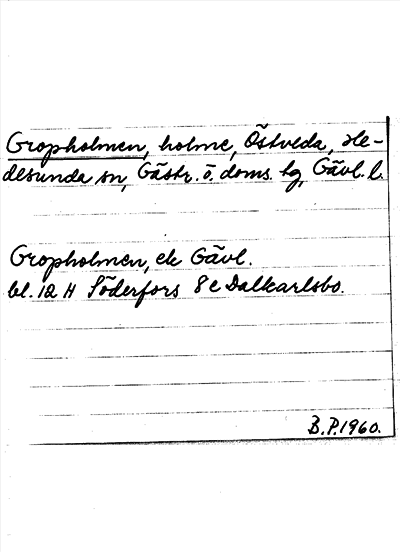 Gropholmen, holme, Östveda, He-
desunda sn, Gästr. ö. doms. tg, Gävl. l.
Gropholmen, ek Gävl.
bl. 12 H Söderfors 8 c Dalkarlsbo.
B.P. 1960.